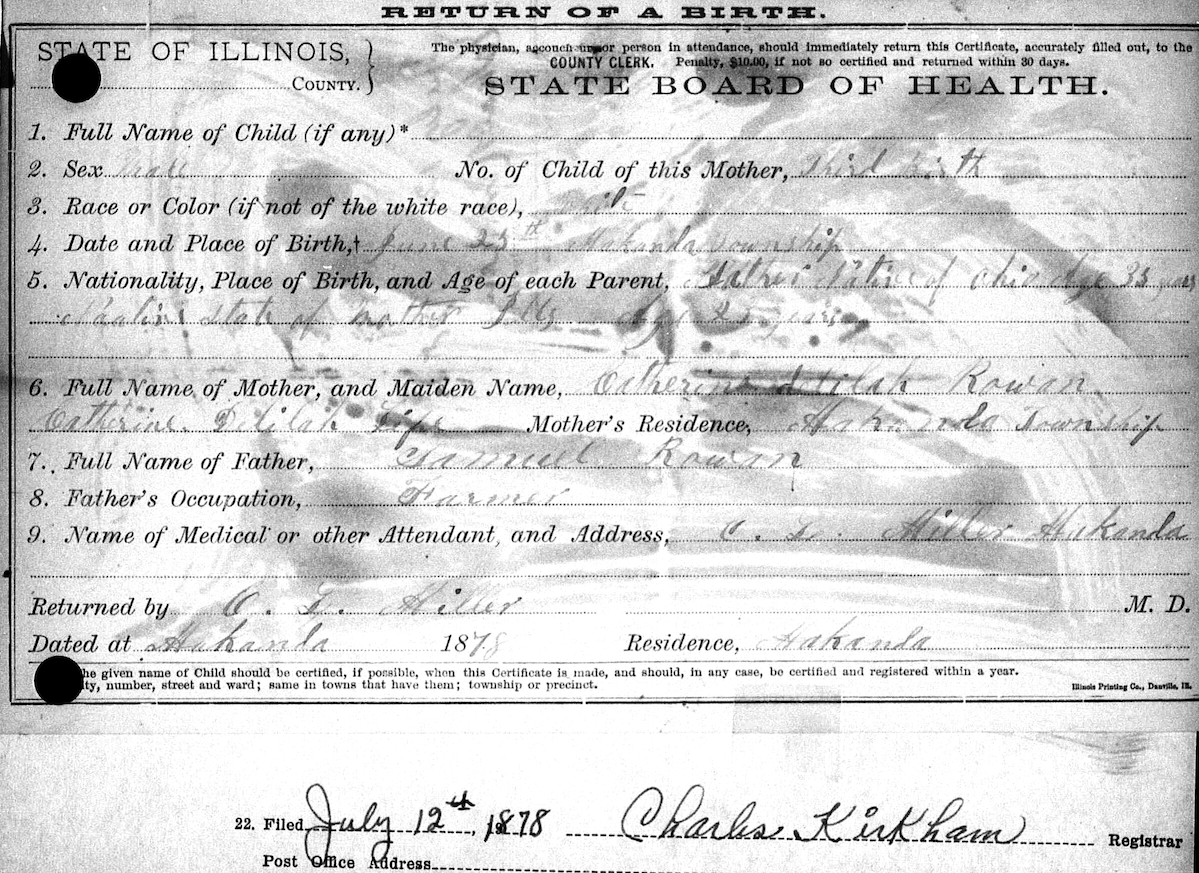 RETURN OF A BIRTH.
STATE OF ILLINOIS,
The physician, accoucheur or person in attendance, should immediately return this Certificate, accurately filled out, to the
COUNTY CLERK. Penalty, $10.00, if not so certified and returned within 30 days.
COUNTY.
STATE BOARD OF HEALTH.
1. Full Name of Child (if any)*
2. Sex Male No. of Child of this Mother, Third Birth
3. Race or Color (if not of the white race), White
4. Date and Place of Birth,† June 25th Makanda Township
5. Nationality, Place of Birth, and Age of each Parent, Father Native of Ohio Age 33 years
state of Mother Ills Age years
6. Full Name of Mother, and Maiden Name, Catherine delilah Rowan
Catherine Delilah Mother's Residence, Makanda Township
7. Full Name of Father, Samuel Rowan
8. Father's Occupation, Farmer
9. Name of Medical or other Attendant, and Address, Miller Makanda
Returned by Miller M. D.
Dated at Makanda 1878 Residence, Makanda
he given name of Child should be certified, if possible, when this Certificate is made, and should, in any case, be certified and registered within a year.
ty, number, street and ward; same in towns that have them; township or precinct.
Illinois Printing Co., Danville, Ill.
22. Filed July 12th, 1878 Charles Kirkham Registrar
Post Office Address